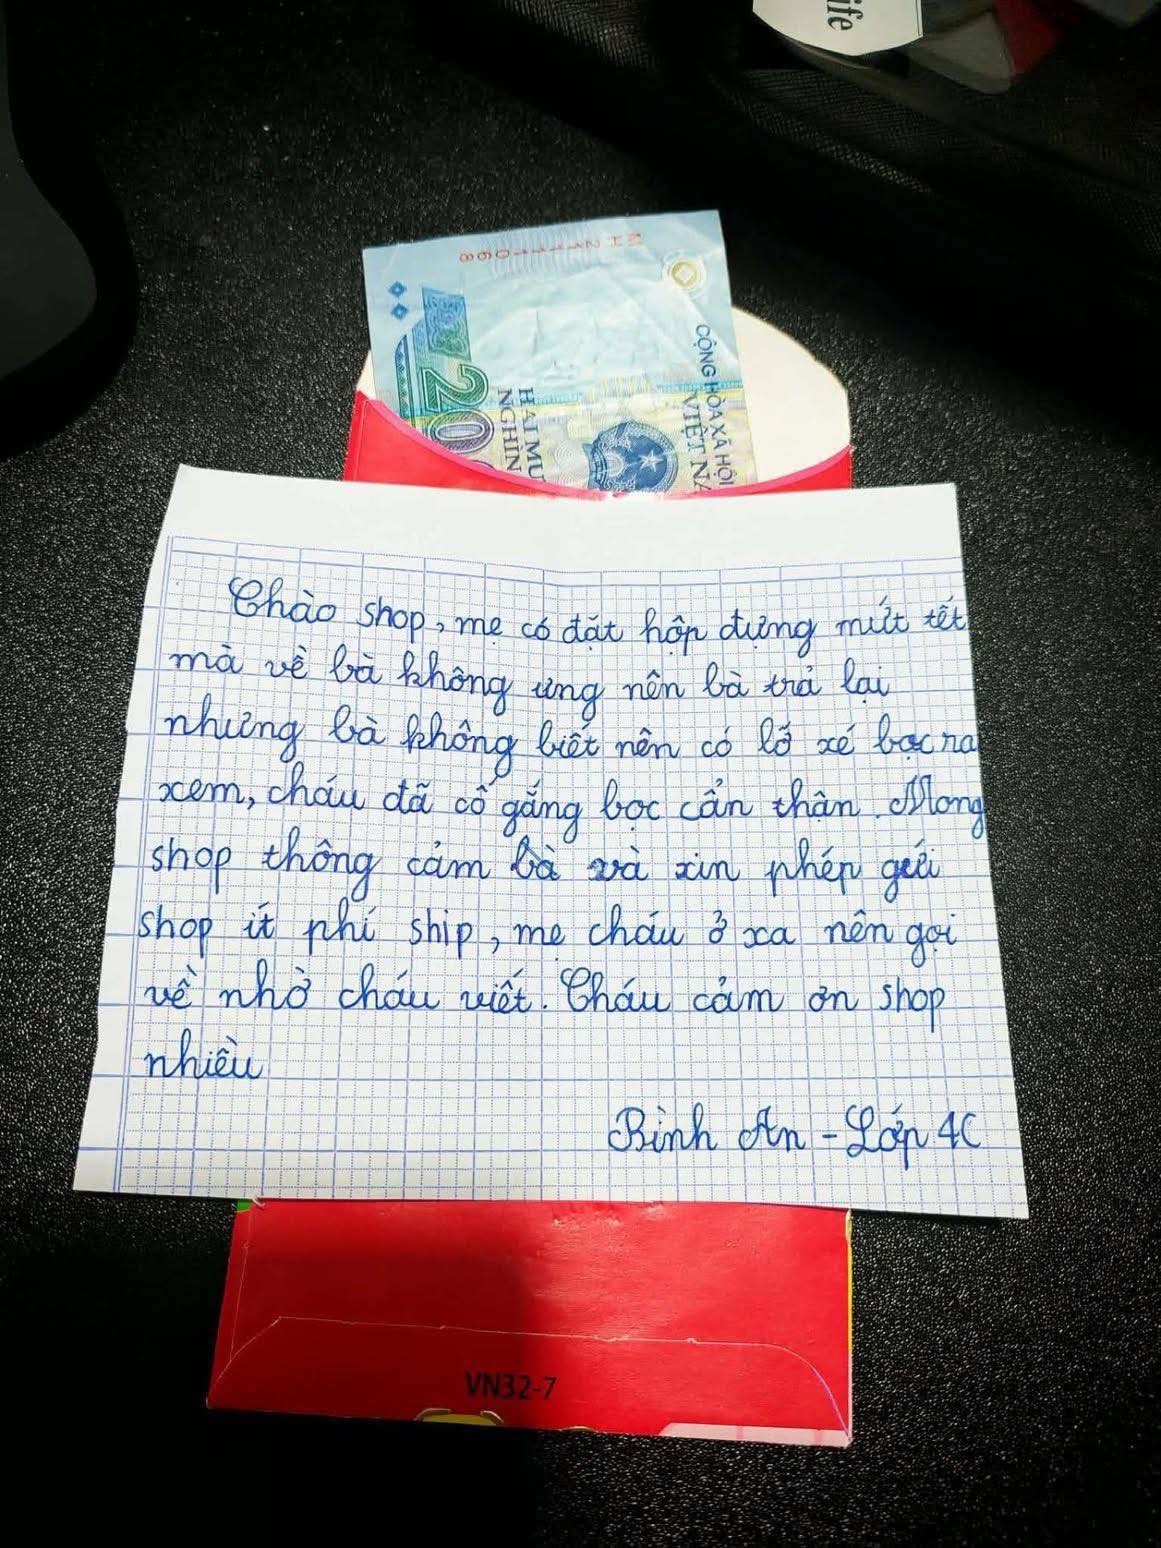 ife
MH21111068
CỘNG HÒA XÃ HỘI
VIỆT NA
HAI MƯ
NGHÌN
20
Chào shop, mẹ có đặt hộp đựng mứt tết
mà về bà không ưng nên bà trả lại
nhưng bà không biết nên có lỡ xé bọc ra
xem, cháu đã cố gắng bọc cẩn thận. Mong
shop thông cảm bà và xin phép gửi
shop ít phí ship, mẹ cháu ở xa nên gọi
về nhờ cháu viết. Cháu cảm ơn shop
nhiều
Bình An - Lớp 4C
VN32-7